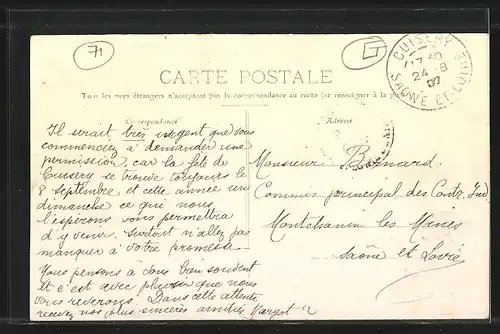 71
CUISERY
17 40
24 - 8
07
SAONE-ET-LOIRE
CARTE POSTALE
Tous les pays étrangers n'acceptent pas la correspondance au recto (se renseigner à la p
Correspondance
Adresse
Il serait très urgent que vous
commenciez à demander une
permission, car la fête de
Cuisery se trouve toujours le
8 septembre, et cette année un
dimanche ce que nous
l'espérons vous permettra
d'y venir. Surtout n'allez pas
manquer à votre promesse.
Nous pensons à vous bien souvent
et c'est avec plaisir que nous
vous reverrons. Dans cette attente
recevez nos plus sincères amitiés Margot
Monsieur Bernard
Commis principal des Contr. Ind
Montchanin les Mines
Saône et Loire